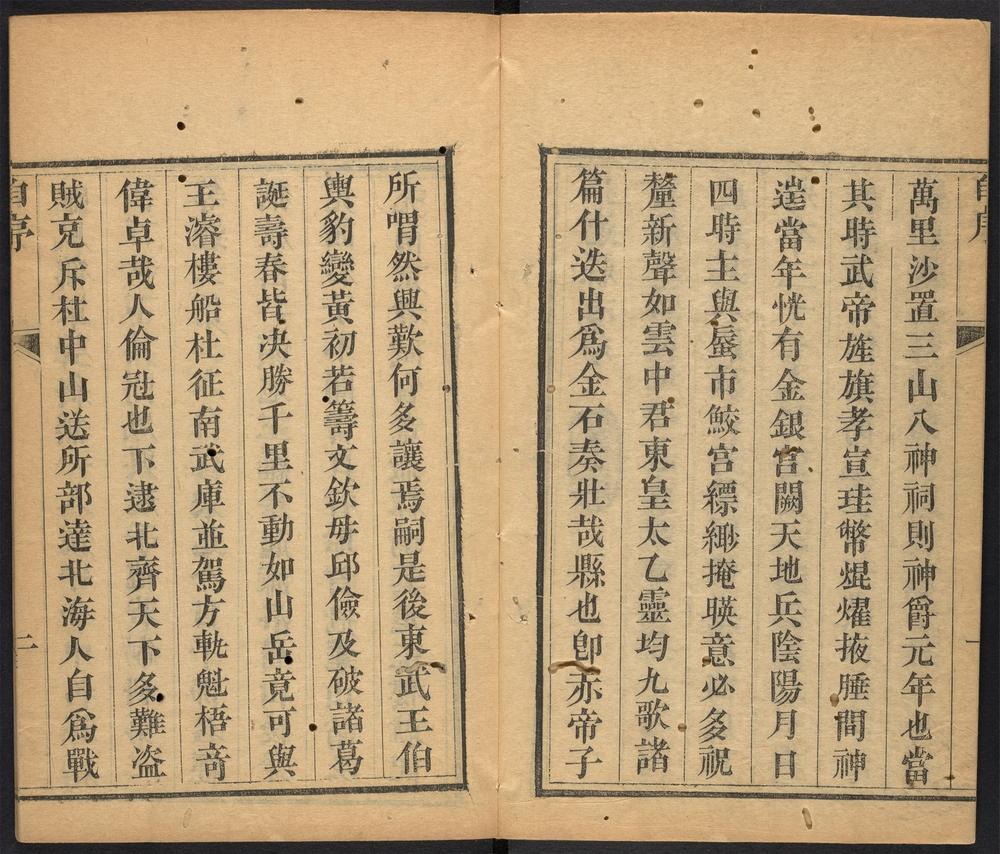 萬里沙置三山八神祠則神爵元年也當
其時武帝旌旗孝宣珪幣焜燿掖腄間神
迣當年恍有金銀宮闕天地兵陰陽月日
四時主與蜃市鮫宮縹緲掩暎意必多祝
釐新聲如雲中君東皇太乙靈均九歌諸
篇什迭出為金石奏壯哉縣也卽亦帝子
所喟然興歎何多讓焉嗣是後東武王伯
輿豹變黃初若籌文欽毋邱儉及破諸葛
誕壽春皆决勝千里不動如山岳竟可與
王濬樓船杜征南武庫並駕方軌魁梧奇
偉卓哉人倫冠也下逮北齊天下多難盜
賊充斥杜中山送所部達北海人自為戰
二